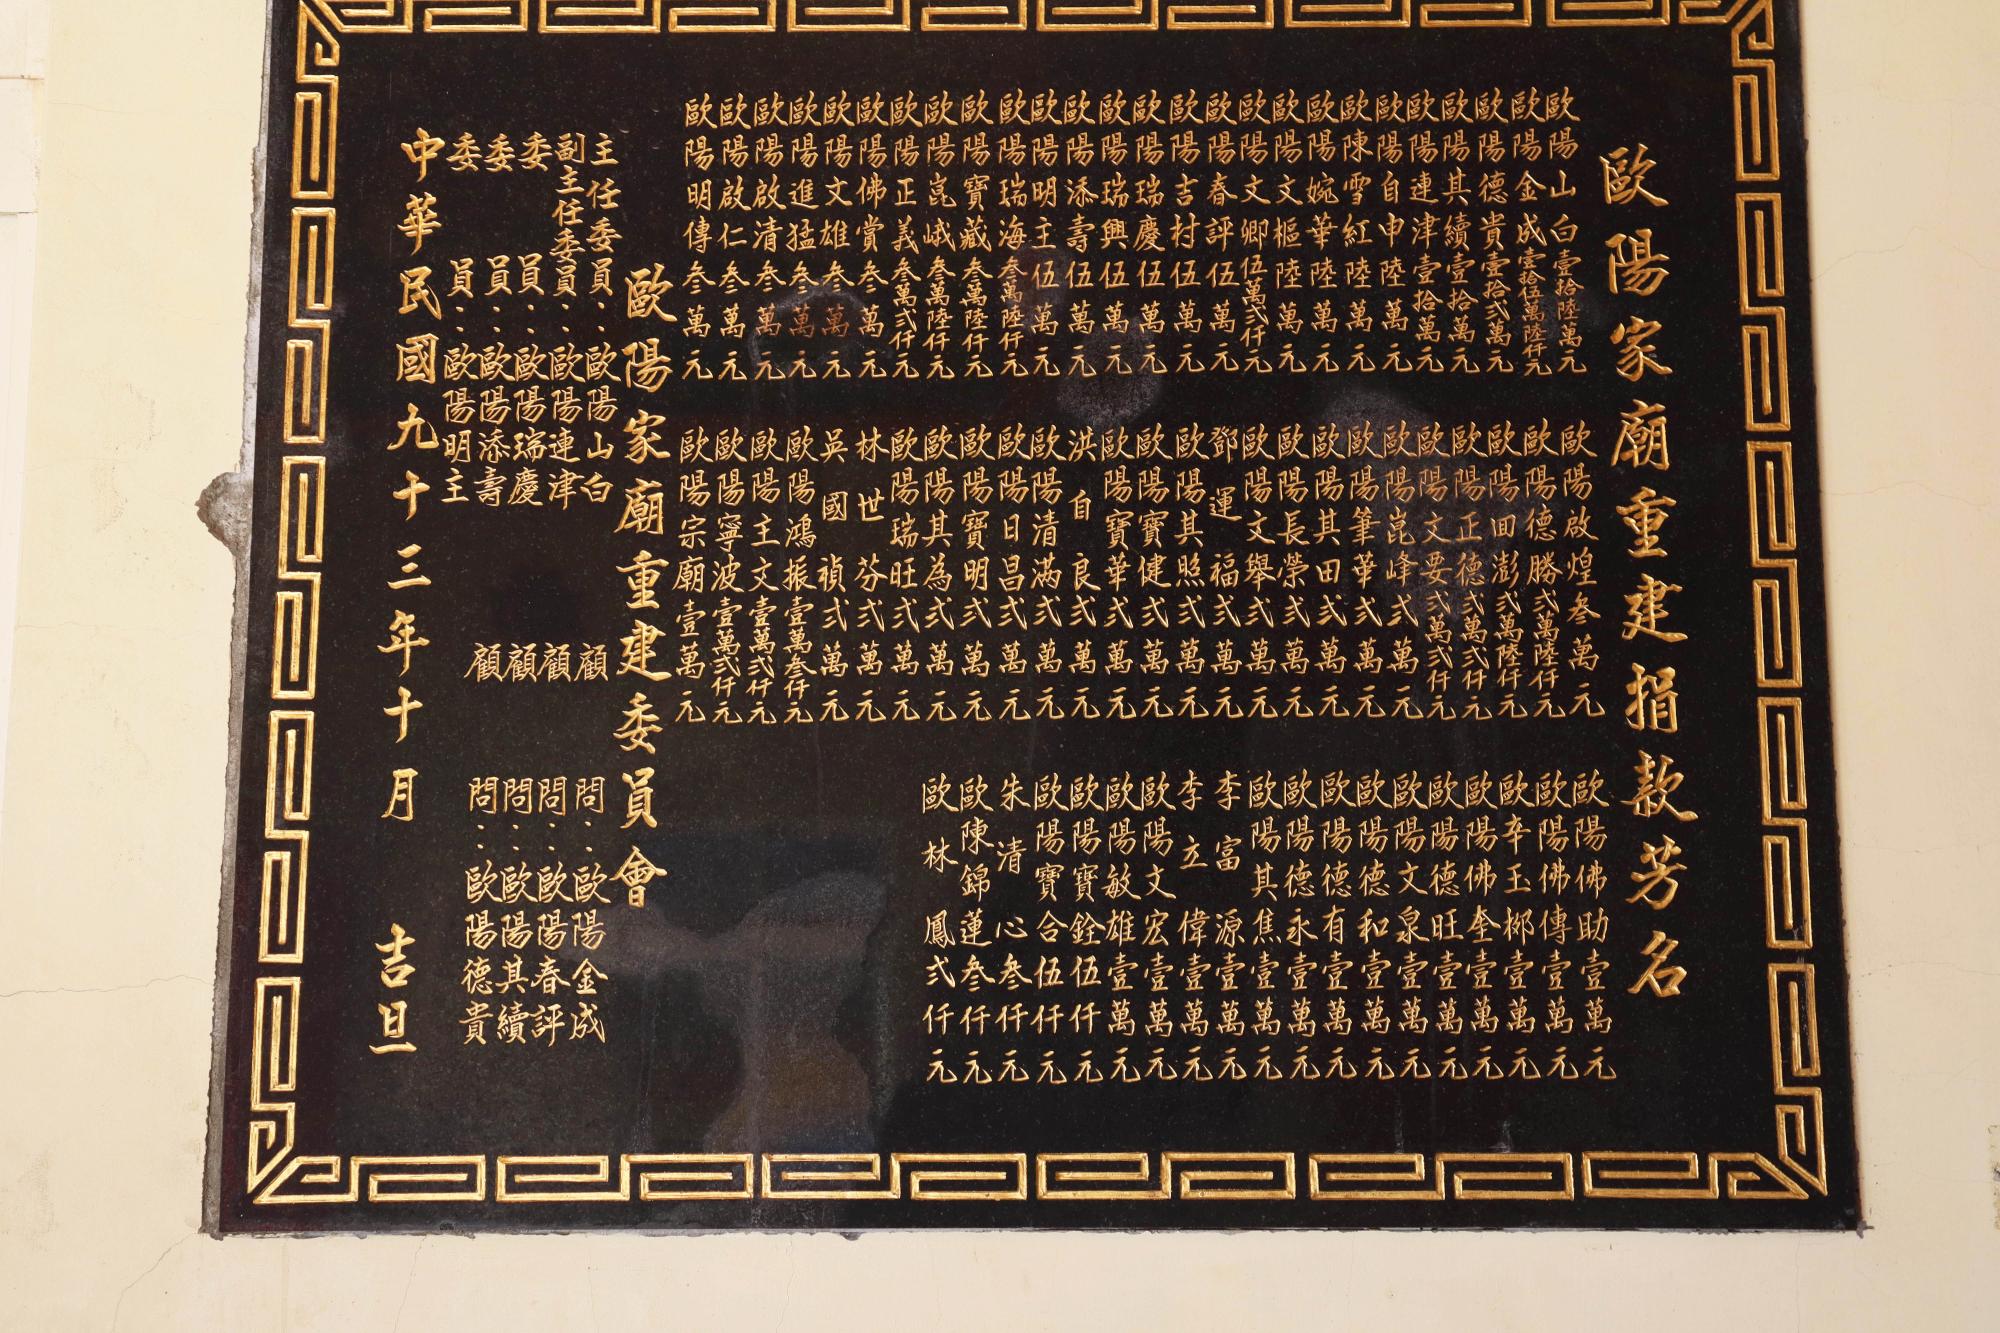 歐陽家廟重建捐款芳名
歐陽山白壹拾陸萬元
歐陽金成壹拾伍萬陸仟元
歐陽德貴壹拾弍萬元
歐陽其續壹拾萬元
歐陽連津壹拾萬元
歐陽自申陸萬元
歐陳雪紅陸萬元
歐陽婉華陸萬元
歐陽文樞陸萬元
歐陽文卿伍萬弍仟元
歐陽春評伍萬元
歐陽吉村伍萬元
歐陽瑞慶伍萬元
歐陽瑞興伍萬元
歐陽添壽伍萬元
歐陽明主伍萬元
歐陽瑞海叁萬陸仟元
歐陽寶藏叁萬陸仟元
歐陽崑峨叁萬陸仟元
歐陽正義叁萬弍仟元
歐陽佛賞叁萬元
歐陽文雄叁萬元
歐陽進猛叁萬元
歐陽啟清叁萬元
歐陽啟仁叁萬元
歐陽明傳叁萬元
歐陽啟煌叁萬元
歐陽德勝弍萬陸仟元
歐陽田澎弍萬陸仟元
歐陽正德弍萬弍仟元
歐陽文要弍萬弍仟元
歐陽崑峰弍萬元
歐陽筆華弍萬元
歐陽其田弍萬元
歐陽長榮弍萬元
歐陽文舉弍萬元
鄧運福弍萬元
歐陽其照弍萬元
歐陽寶健弍萬元
歐陽寶華弍萬元
洪自良弍萬元
歐陽清滿弍萬元
歐陽日昌弍萬元
歐陽寶明弍萬元
歐陽其為弍萬元
歐陽瑞旺弍萬元
林世芬弍萬元
吳國禎弍萬元
歐陽鴻振壹萬叁仟元
歐陽主文壹萬弍仟元
歐陽寧波壹萬弍仟元
歐陽宗廟壹萬元
歐陽佛助壹萬元
歐陽佛傳壹萬元
歐辛玉梆壹萬元
歐陽佛奎壹萬元
歐陽德旺壹萬元
歐陽文泉壹萬元
歐陽德和壹萬元
歐陽德有壹萬元
歐陽德永壹萬元
歐陽其焦壹萬元
李富源壹萬元
李立偉壹萬元
歐陽文宏壹萬元
歐陽敏雄壹萬元
歐陽寶銓伍仟元
歐陽寶合伍仟元
朱清心叁仟元
歐陳錦蓮叁仟元
歐林鳳弍仟元
歐陽家廟重建委員會
主任委員：歐陽山白
副主任委員：歐陽連津
委員：歐陽瑞慶
委員：歐陽添壽
委員：歐陽明主
顧問：歐陽金成
顧問：歐陽春評
顧問：歐陽其續
顧問：歐陽德貴
中華民國九十三年十月吉旦